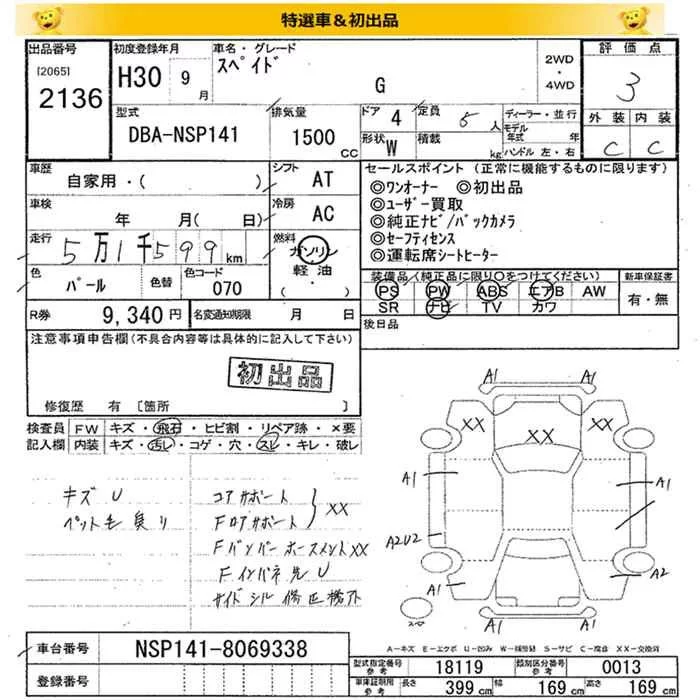 特選車&初出品
出品番号
[2065]
2136
初度登録年月
H30 9月
車名・グレード
スペイド
G
2WD
・
4WD
評価点
3
外装 内装
C C
型式
DBA-NSP141
排気量
1500
CC
ドア 4
定員 5人
形状 W
積載 kg
ディーラー・並行
モデル年式 年
ハンドル 左・右
車歴
自家用・( )
シフト
AT
車検
年 月( 日)
冷房
AC
走行
5万1千599km
燃料
ガソリン
軽油
( ・ )
色
パール
色替
色コード
070
R券 9,340円
名変通知期限 月 日
セールスポイント (正常に機能するものに限ります)
◎ワンオーナー ◎初出品
◎ユーザー買取
◎純正ナビ/バックカメラ
◎セーフティセンス
◎運転席シートヒーター
装備品(純正品に限り○をつけてください)
新車保証書
PS PW ABS エアB AW
SR ナビ TV カワ
有・無
後日品
注意事項申告欄(不具合内容等は具体的に記入して下さい)
初出品
修復歴 有 [箇所 ]
検査員 FW キズ・飛石・ヒビ割・リペア跡・×要
記入欄 内装 キズ・汚レ・コゲ・穴・スレ・キレ・破レ
キズ U
ペット毛 臭り
コアサポート
Fロアサポート
XX
Fバンパーホースメント XX
Fインパネ先 U
サイドシル 修正機外
A1 A1
XX XX XX
A1 A1
A2U2
A1 A2
A1 A1
スペア
A-キズ E-エクボ U-凹み W-補修跡 S-サビ C-腐食 XX-交換済
車台番号 NSP141-8069338
登録番号
型式指定番号 参考 18119
類別区分番号 参考 0013
車庫証明用 参考
長さ 399cm 幅 169cm 高さ 169cm